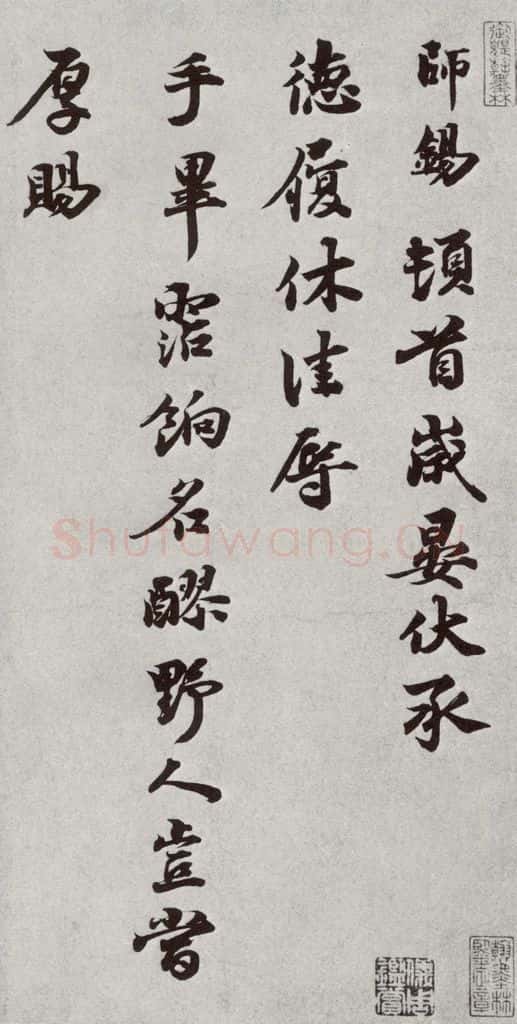 師錫頓首歲晏伏承
德履休佳辱
手畢寵餉名醪野人豈嘗
厚賜
Shufawang.CN